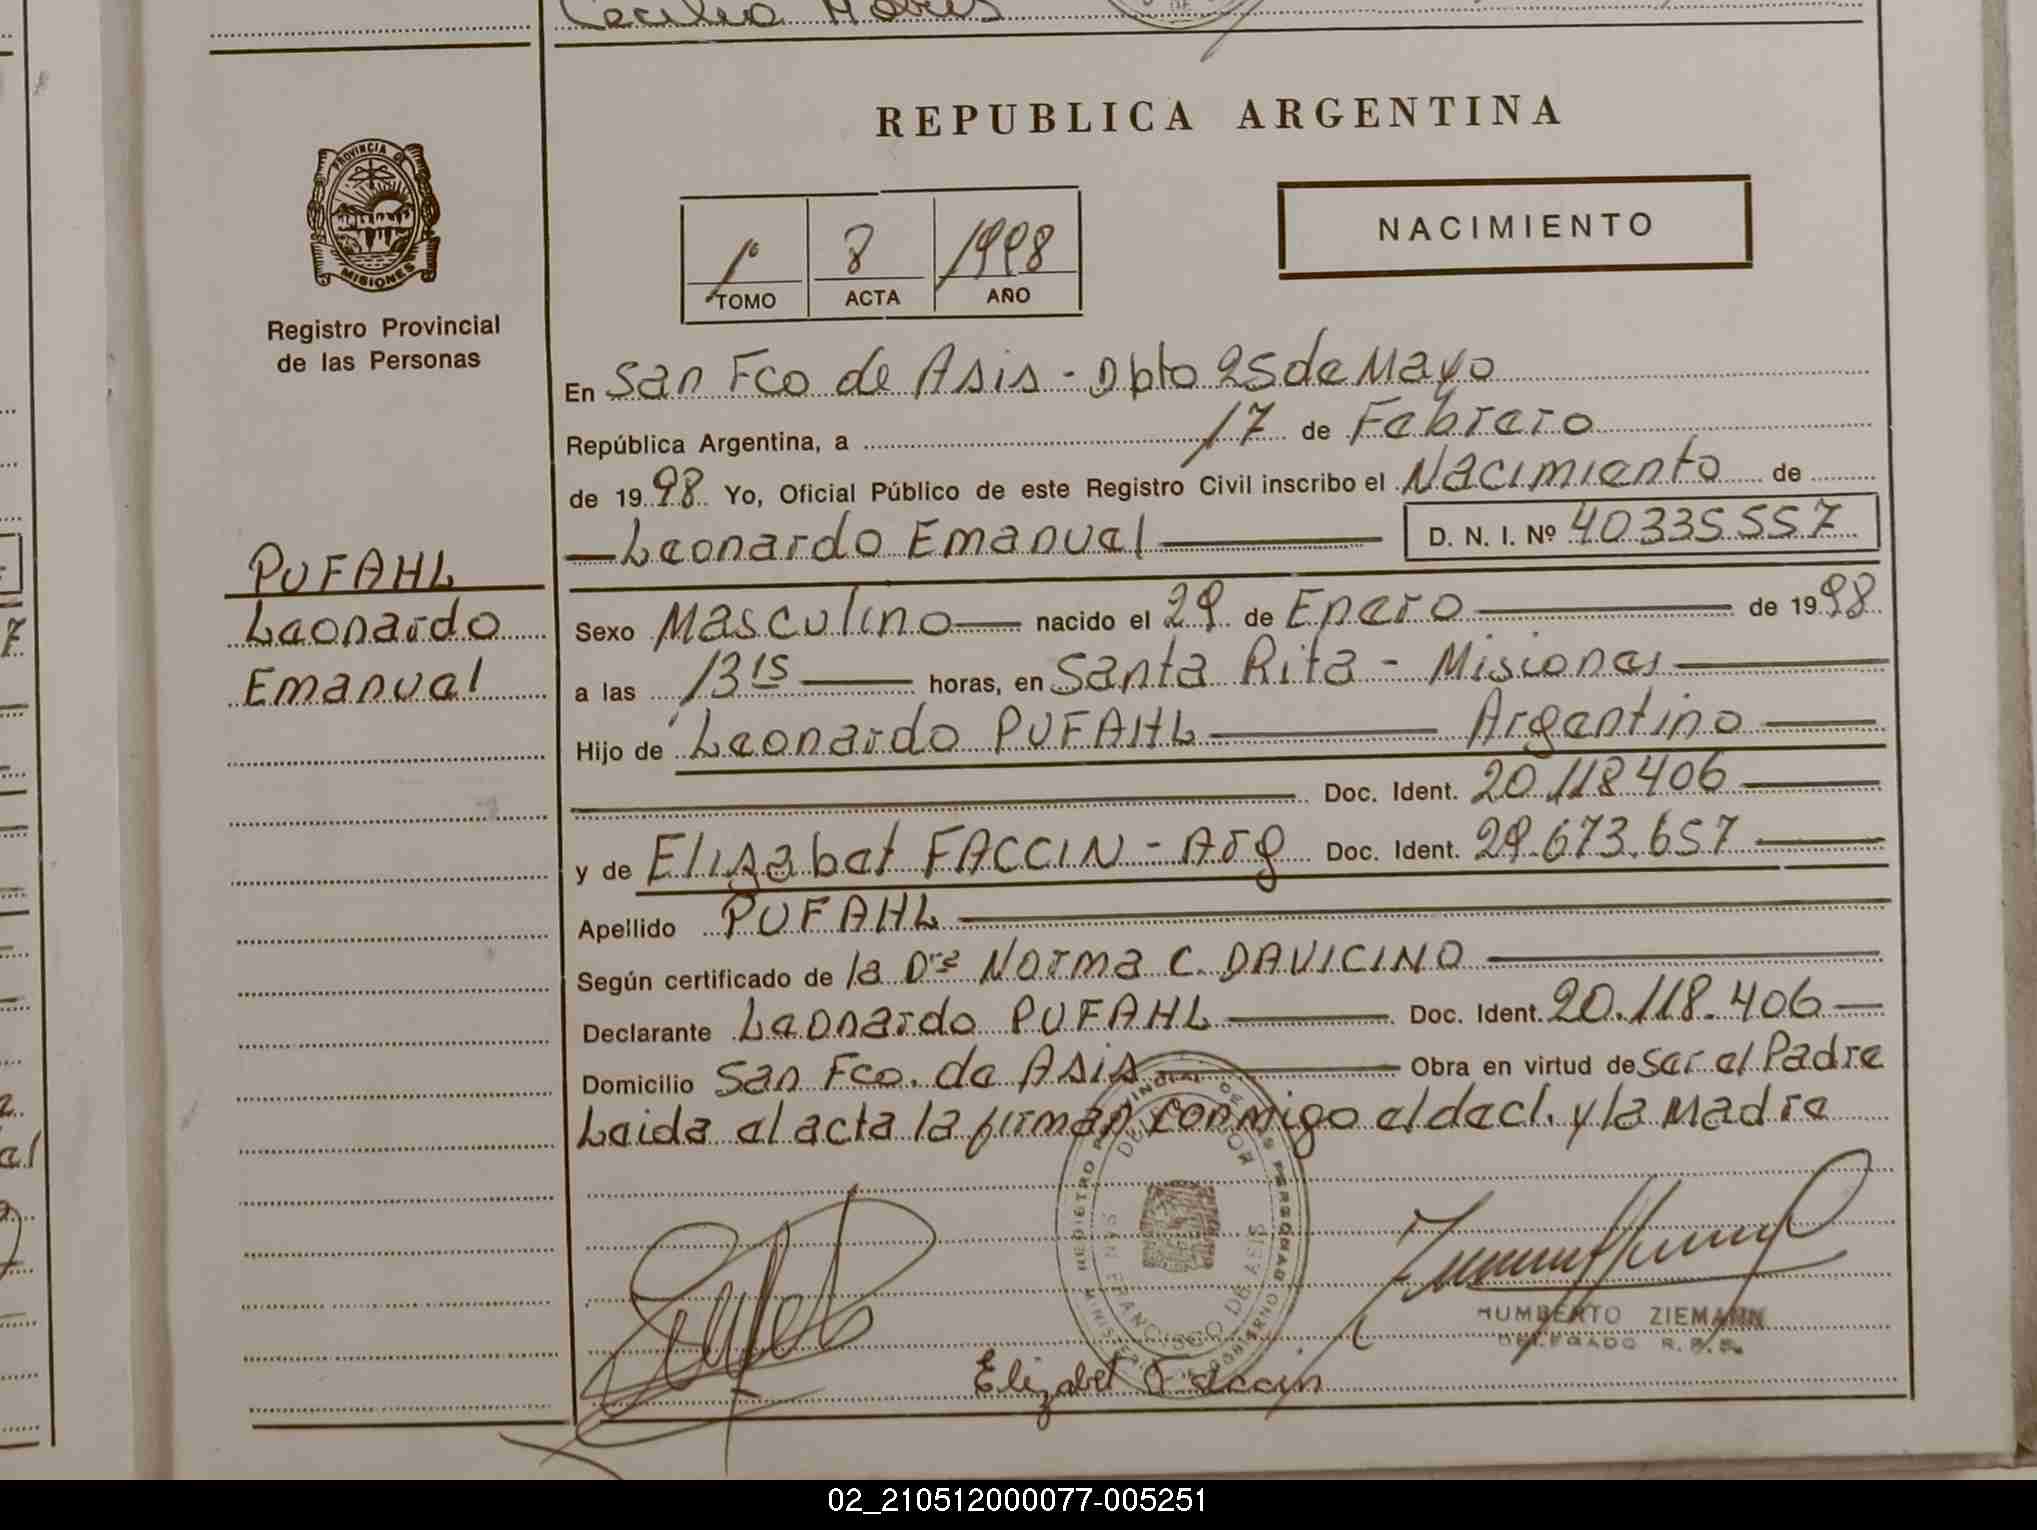 Cecilia
REPUBLICA ARGENTINA
PROVINCIA DE
MISIONES
Registro Provincial
de las Personas
1º 8 1998
TOMO ACTA AÑO
NACIMIENTO
En San Fco de Asis - Dpto 25 de Mayo
República Argentina, a 17 de Febrero
de 1998 Yo, Oficial Público de este Registro Civil inscribo el Nacimiento de
Leonardo Emanuel D. N. I. Nº 40335557
PUFAHL
Leonardo
Emanuel
Sexo Masculino nacido el 29 de Enero de 1998
a las 13 15 horas, en Santa Rita - Misiones
Hijo de Leonardo PUFAHL Argentino
Doc. Ident. 20.118.406
y de Elisabet FACCIN - Arg Doc. Ident. 29.673.657
Apellido PUFAHL
Según certificado de la Dra Norma C. DAVICINO
Declarante Leonardo PUFAHL Doc. Ident. 20.118.406
Domicilio San Fco. de Asis Obra en virtud de ser el Padre
Leida el acta la firman conmigo el decl. y la Madre
SAN FRANCISCO DE ASIS
HUMBERTO ZIEMANN
DELEGADO R.P.P.
Elizabet Faccin
02_210512000077-005251